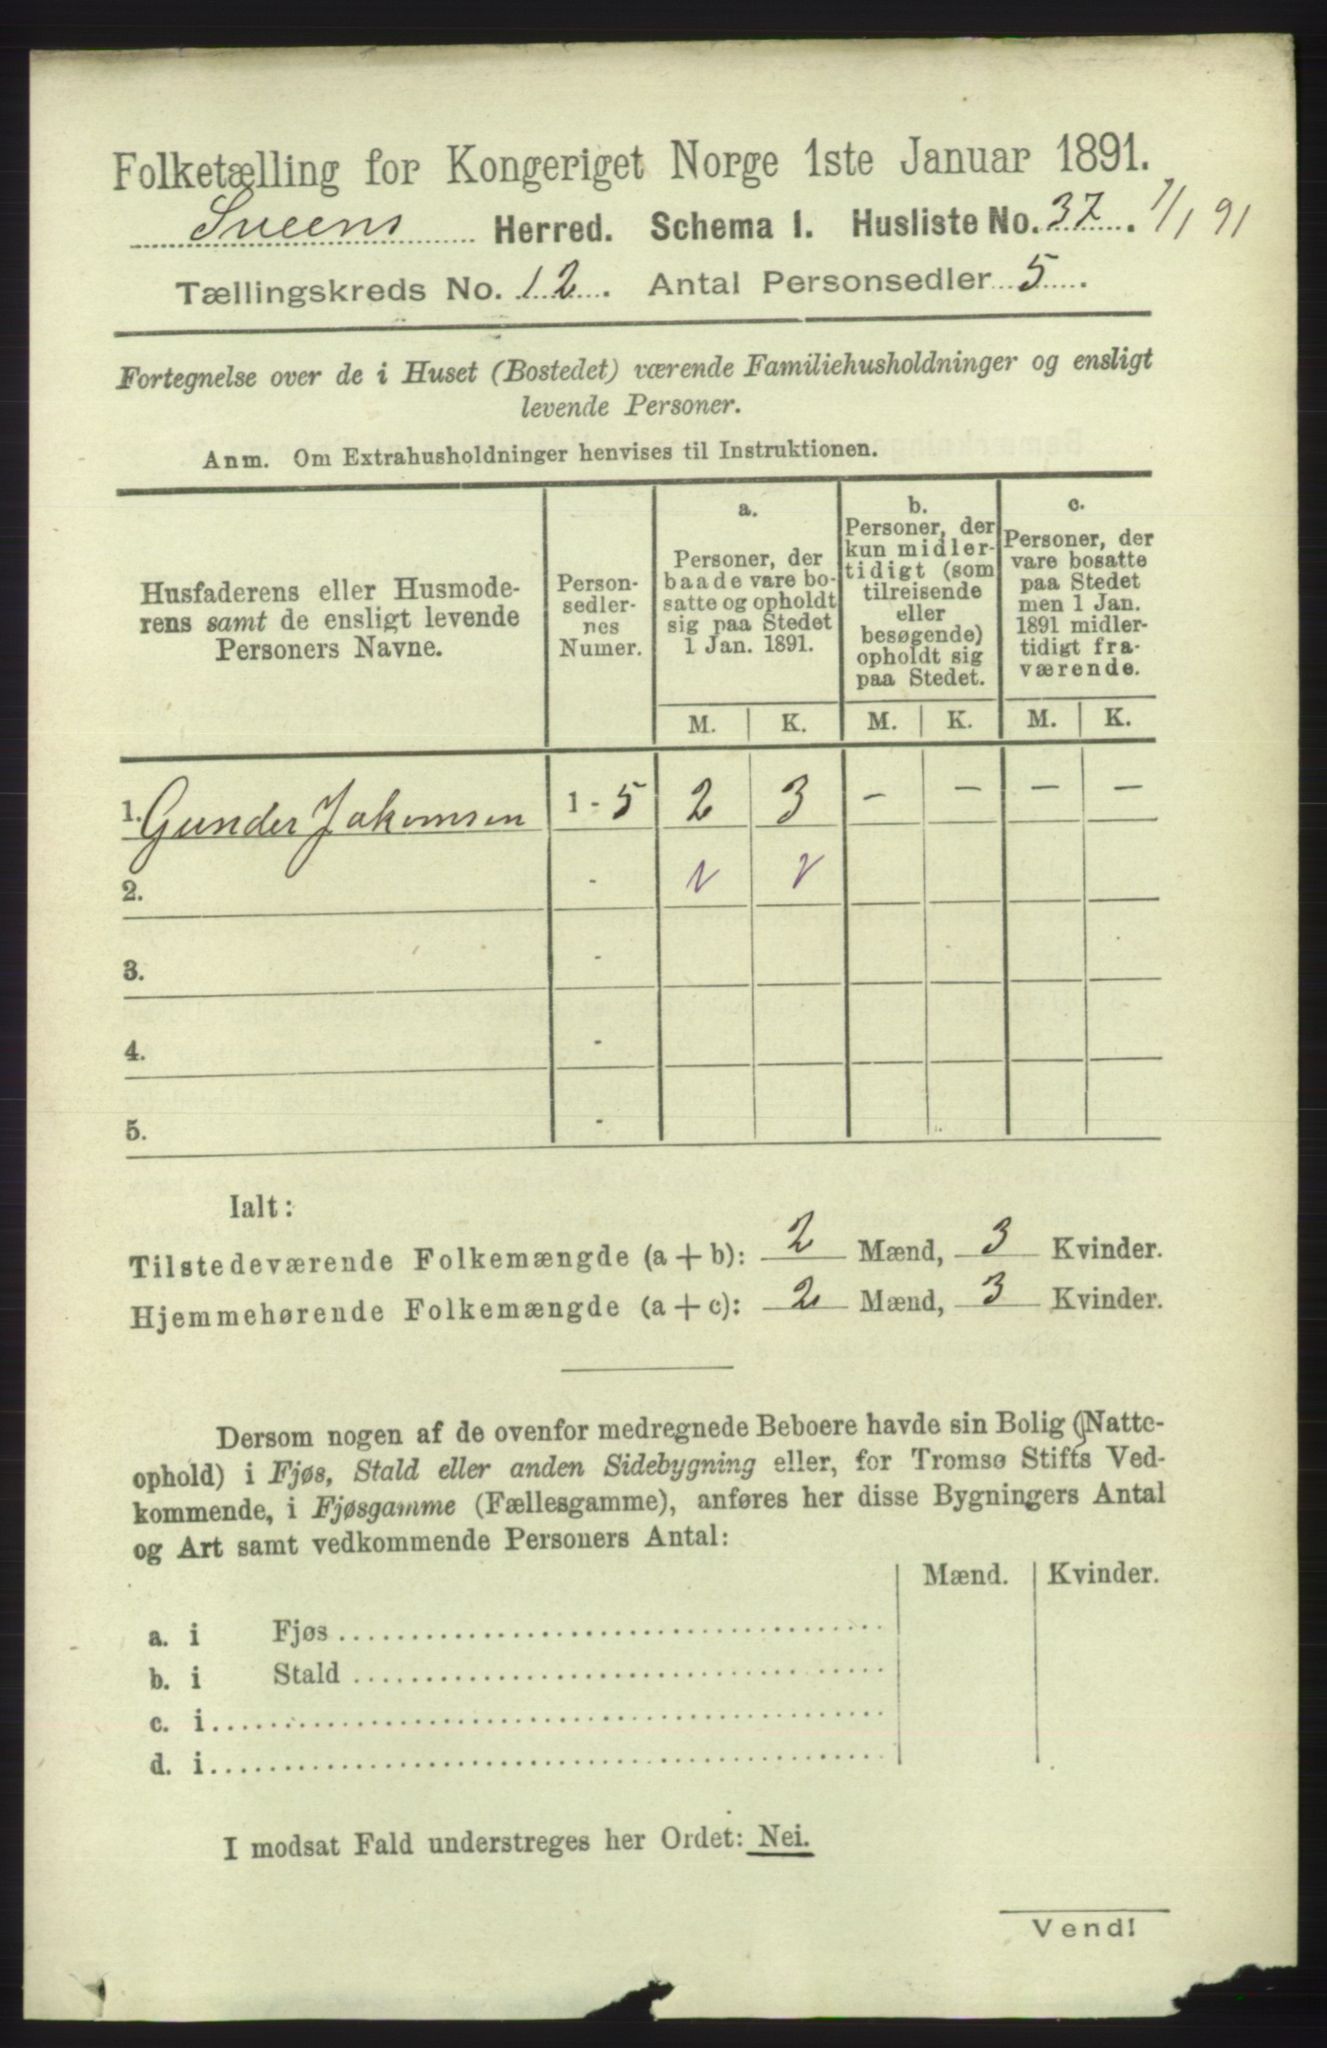 Folketælling for Kongeriget Norge 1ste Januar 1891.
Sveens Herred. Schema 1. Husliste No. 37. 1/1 91
Tællingskreds No. 12. Antal Personsedler 5.
Fortegnelse over de i Huset (Bostedet) værende Familiehusholdninger og ensligt
levende Personer.
Anm. Om Extrahusholdninger henvises til Instruktionen.
Husfaderens eller Husmode-
rens samt de ensligt levende
Personers Navne.
Person-
sedler-
nes
Numer.
a.
Personer, der
baade vare bo-
satte og opholdt
sig paa Stedet
1 Jan. 1891.
b.
Personer, der
kun midler-
tidigt (som
tilreisende
eller
besøgende)
opholdt sig
paa Stedet.
c.
Personer, der
vare bosatte
paa Stedet
men 1 Jan.
1891 midler-
tidigt fra-
værende.
M. K. M. K. M. K.
1. Gunder Jakomsen 1 - 5 2 3 - - - -
2. - v v
3. -
4. -
5. -
Ialt:
Tilstedeværende Folkemængde (a + b): 2 Mænd, 3 Kvinder.
Hjemmehørende Folkemængde (a + c): 2 Mænd, 3 Kvinder.
Dersom nogen af de ovenfor medregnede Beboere havde sin Bolig (Natte-
ophold) i Fjøs, Stald eller anden Sidebygning eller, for Tromsø Stifts Ved-
kommende, i Fjøsgamme (Fællesgamme), anføres her disse Bygningers Antal
og Art samt vedkommende Personers Antal:
Mænd. Kvinder.
a. i Fjøs
b. i Stald
c. i
d. i
I modsat Fald understreges her Ordet: Nei.
Vend!